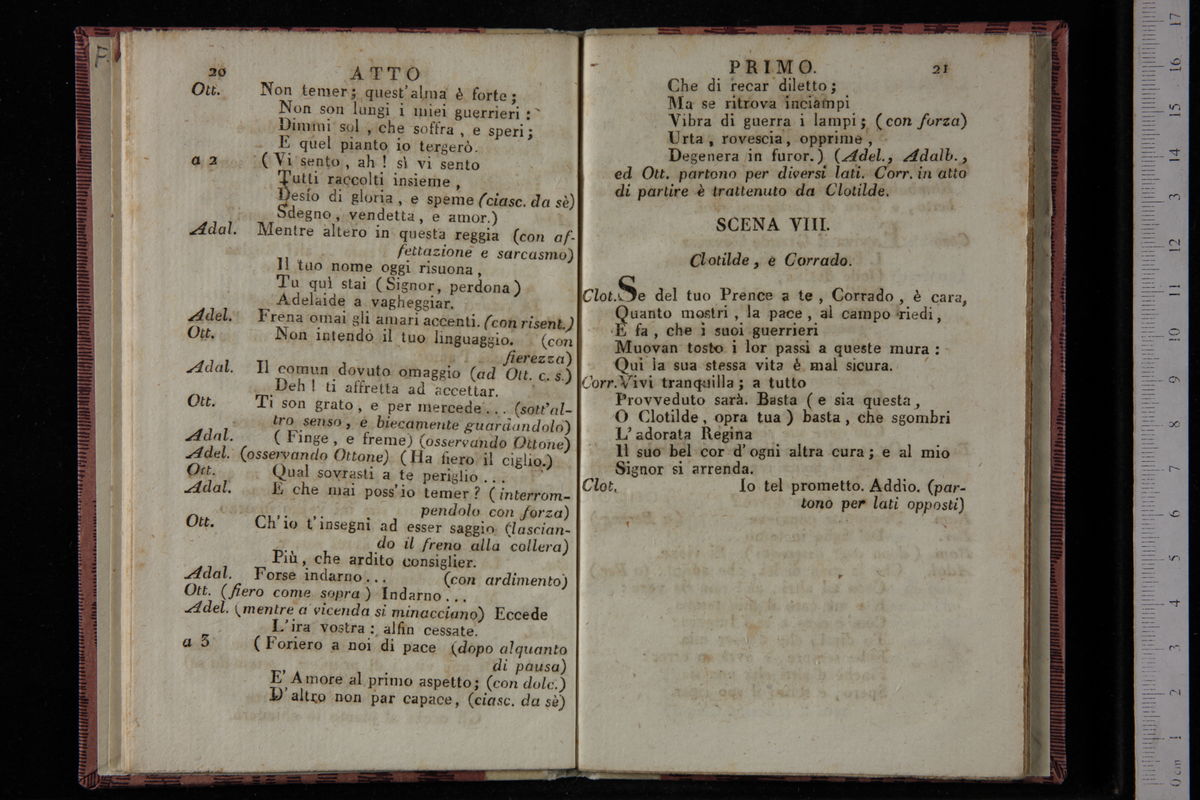 F.
20 ATTO
Ott. Non temer; quest'alma è forte;
Non son lungi i miei guerrieri :
Dimmi sol , che soffra , e speri;
E quel pianto io tergerò.
a 2 ( Vi sento , ah ! sì vi sento
Tutti raccolti insieme ,
Desío di gloria , e speme (ciasc. da sè)
Sdegno , vendetta , e amor.)
Adal. Mentre altero in questa reggia (con af-
fettazione e sarcasmo)
Il tuo nome oggi risuona ,
Tu quì stai ( Signor, perdona )
Adelaide a vagheggiar.
Adel. Frena omai gli amari accenti. (con risent.)
Ott. Non intendo il tuo linguaggio. (con
fierezza)
Adal. Il comun dovuto omaggio (ad Ott. c. s.)
Deh ! ti affretta ad accettar.
Ott. Ti son grato , e per mercede . . . (sott'al-
tro senso, e biecamente guardandolo)
Adal. ( Finge , e freme) (osservando Ottone)
Adel. (osservando Ottone) ( Ha fiero il ciglio.)
Ott. Qual sovrasti a te periglio . . .
Adal. E che mai poss'io temer ? ( interrom-
pendolo con forza)
Ott. Ch'io t'insegni ad esser saggio (lascian-
do il freno alla collera)
Più , che ardito consiglier.
Adal. Forse indarno . . . (con ardimento)
Ott. (fiero come sopra ) Indarno . . .
Adel. (mentre a vicenda si minacciano) Eccede
L'ira vostra : alfin cessate.
a 3 ( Foriero a noi di pace (dopo alquanto
di pausa)
E' Amore al primo aspetto; (con dolc.)
D'altro non par capace, (ciasc. da sè)
PRIMO. 21
Che di recar diletto ;
Ma se ritrova inciampi
Vibra di guerra i lampi ; (con forza)
Urta , rovescia , opprime ,
Degenera in furor.) (Adel., Adalb.,
ed Ott. partono per diversi lati. Corr. in atto
di partire è trattenuto da Clotilde.
SCENA VIII.
Clotilde , e Corrado.
Clot. Se del tuo Prence a te , Corrado , è cara,
Quanto mostri , la pace , al campo riedi,
E fa , che i suoi guerrieri
Muovan tosto i lor passi a queste mura :
Qui la sua stessa vita è mal sicura.
Corr. Vivi tranquilla ; a tutto
Provveduto sarà. Basta ( e sia questa ,
O Clotilde , opra tua ) basta , che sgombri
L'adorata Regina
Il suo bel cor d'ogni altra cura ; e al mio
Signor si arrenda.
Clot. Io tel prometto. Addio. (par-
tono per lati opposti)
0 cm 1 2 3 4 5 6 7 8 9 10 11 12 13 14 15 16 17